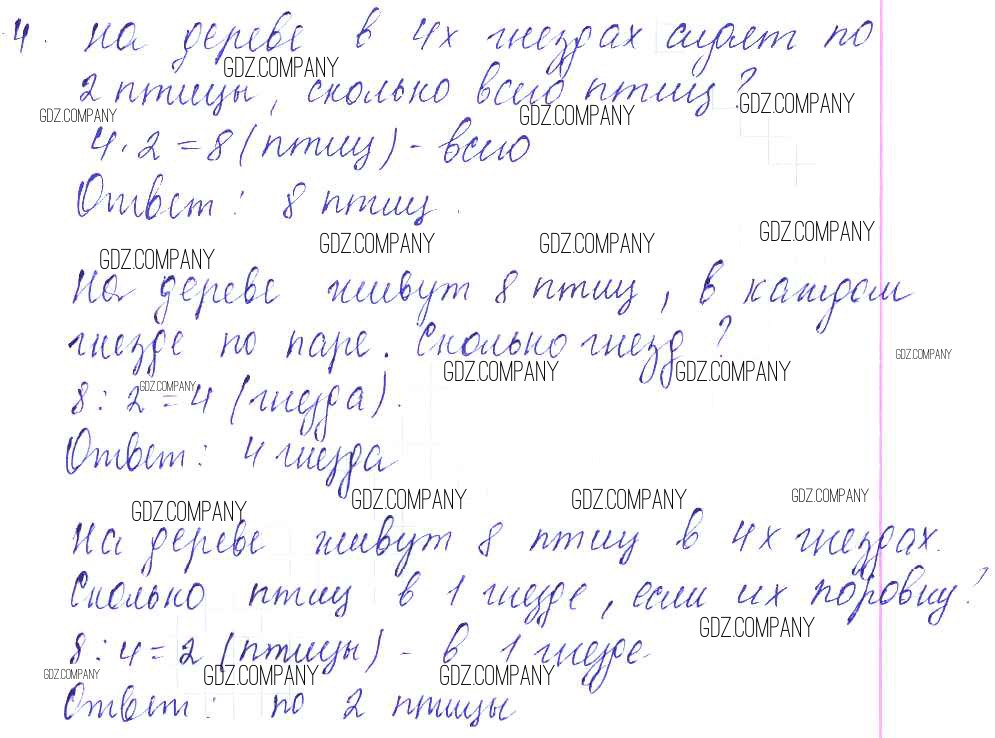 4. На дереве в 4х гнездах сидят по
GDZ.COMPANY
2 птицы, сколько всего птиц?
GDZ.COMPANY GDZ.COMPANY GDZ.COMPANY
4 · 2 = 8 (птиц) - всего
Ответ: 8 птиц.
GDZ.COMPANY GDZ.COMPANY GDZ.COMPANY GDZ.COMPANY
На дереве живут 8 птиц, в каждом
гнезде по паре. Сколько гнезд?
GDZ.COMPANY GDZ.COMPANY GDZ.COMPANY
8 : 2 = 4 (гнезда).
GDZ.COMPANY
Ответ: 4 гнезда
GDZ.COMPANY GDZ.COMPANY GDZ.COMPANY GDZ.COMPANY
На дереве живут 8 птиц в 4х гнездах.
Сколько птиц в 1 гнезде, если их поровну?
GDZ.COMPANY
8 : 4 = 2 (птицы) - в 1 гнезде
GDZ.COMPANY GDZ.COMPANY GDZ.COMPANY
Ответ: по 2 птицы